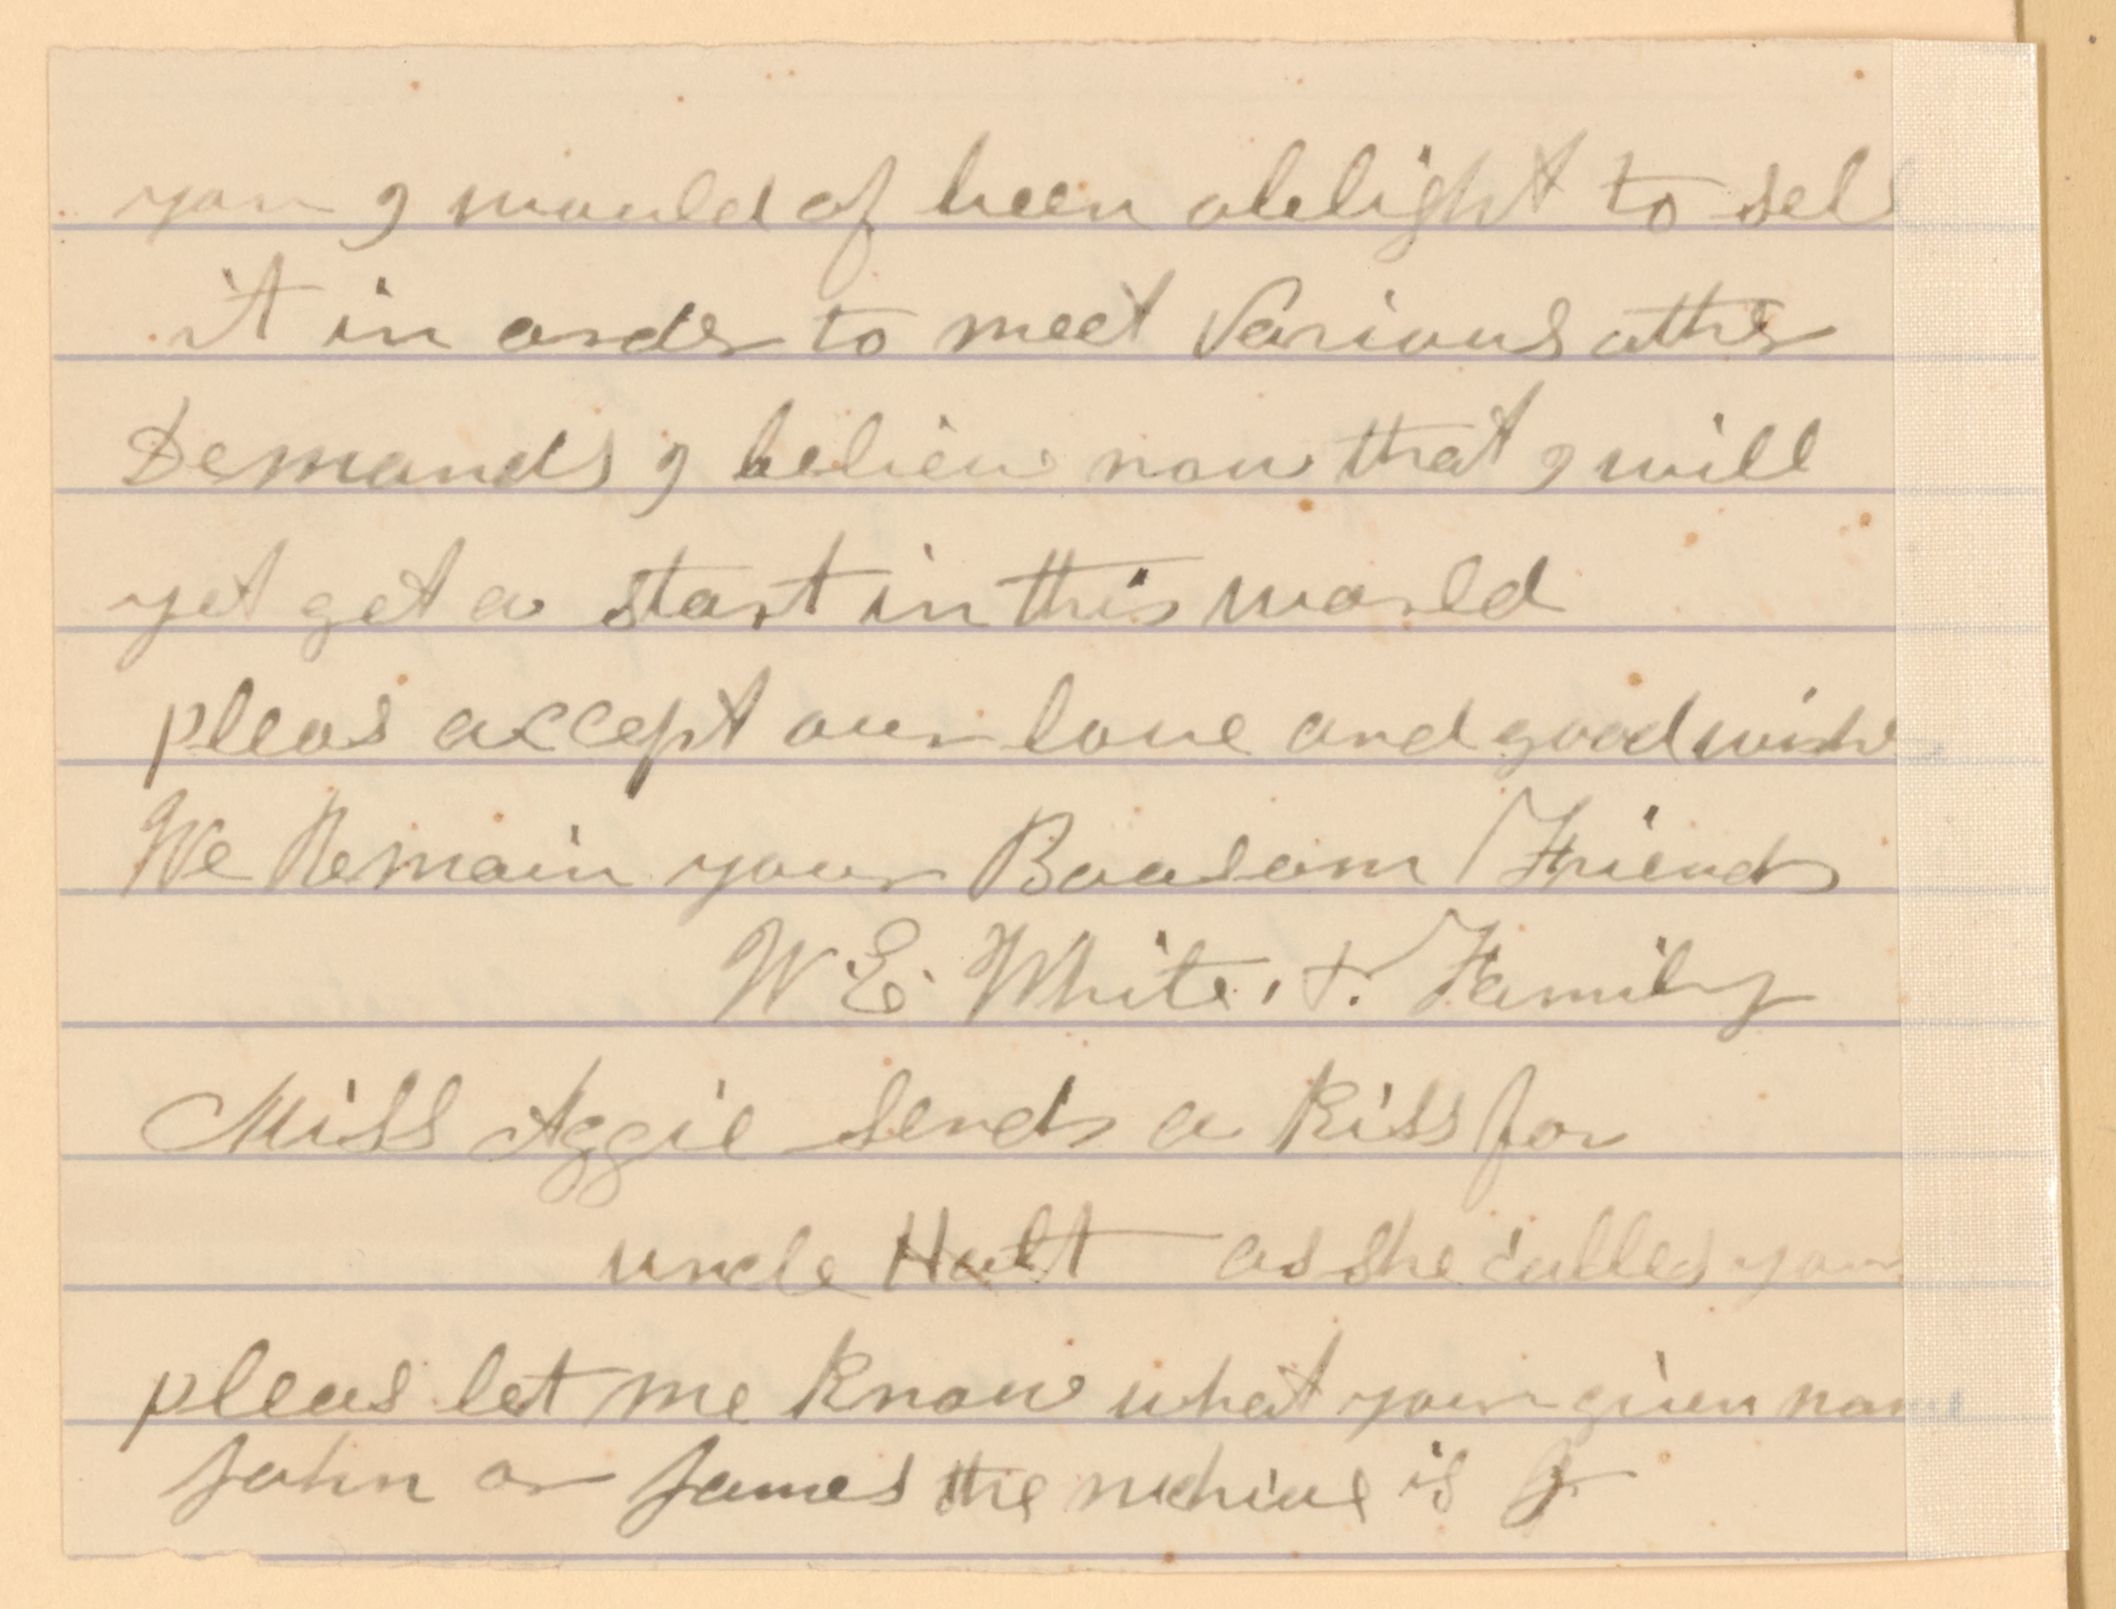 you I would of been oblight to sell
it in order to meet Various other
Demands I believe now that I will
yet get a start in this world
pleas accept our love and good wishes
We Remain your Boosom Friends
W E. White, &. Family
Miss Aggie sends a Kiss for
uncle Halt as she calles you
pleas let me know what your given name
John or James the is J